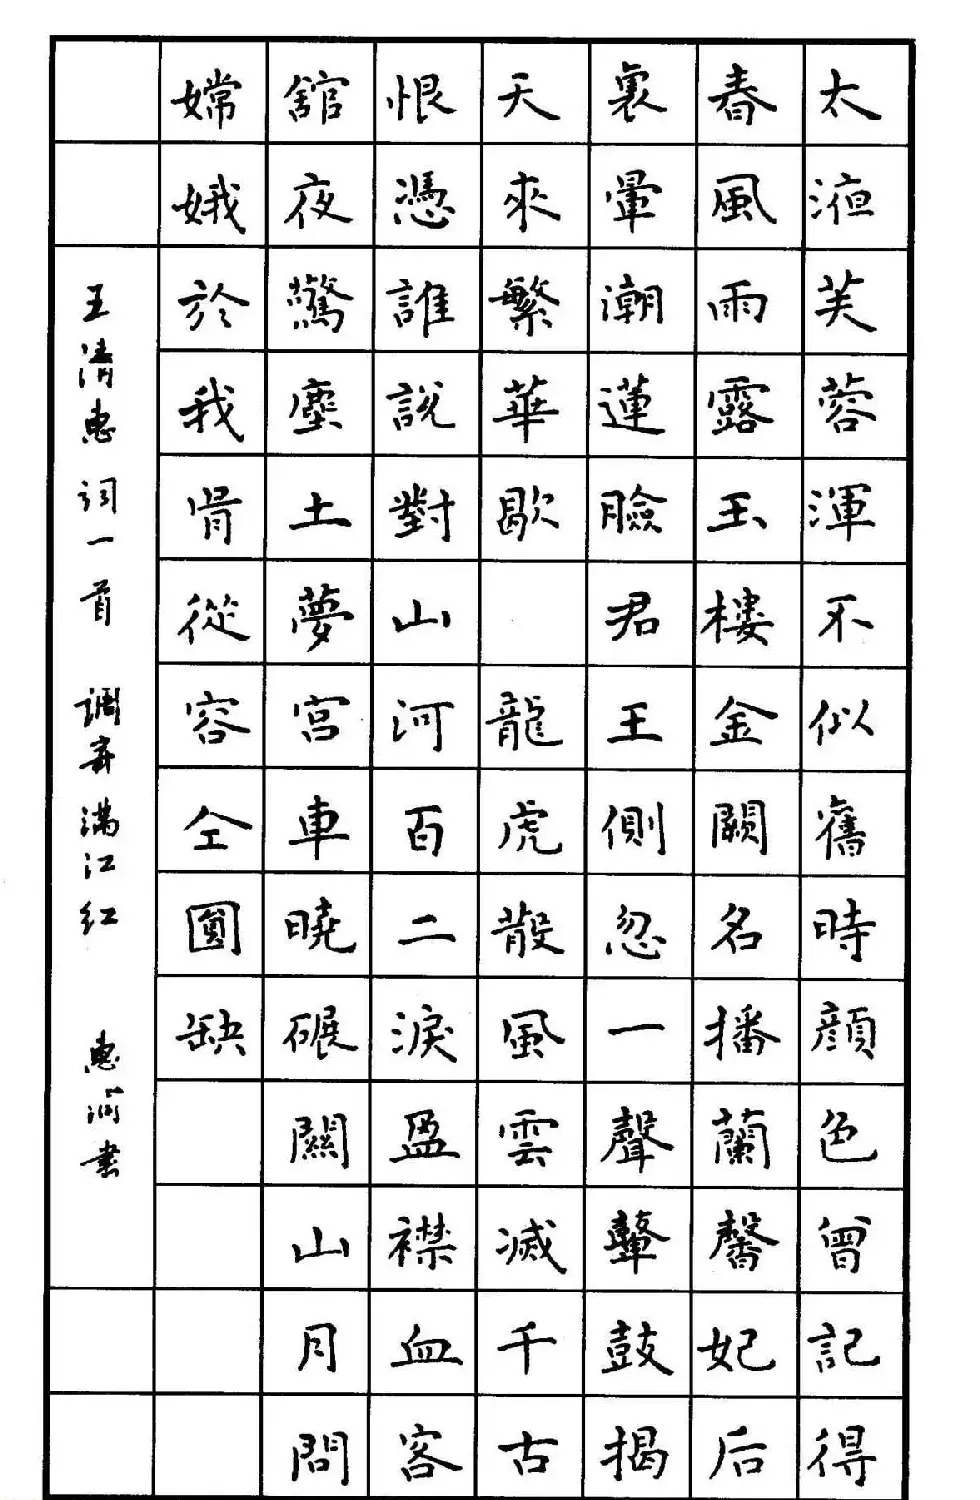 太液芙蓉渾不似舊時顔色曾記得
春風雨露玉樓金闕名播蘭馨妃后
裏暈潮蓮臉君王側忽一聲鼙鼓揭
天來繁華歇 龍虎散風雲滅千古
恨憑誰說對山河百二淚盈襟血客
舘夜驚塵土夢宮車曉碾關山月問
嫦娥於我肯從容仝圓缺
王清惠词一首 调寄满江红 惠 书